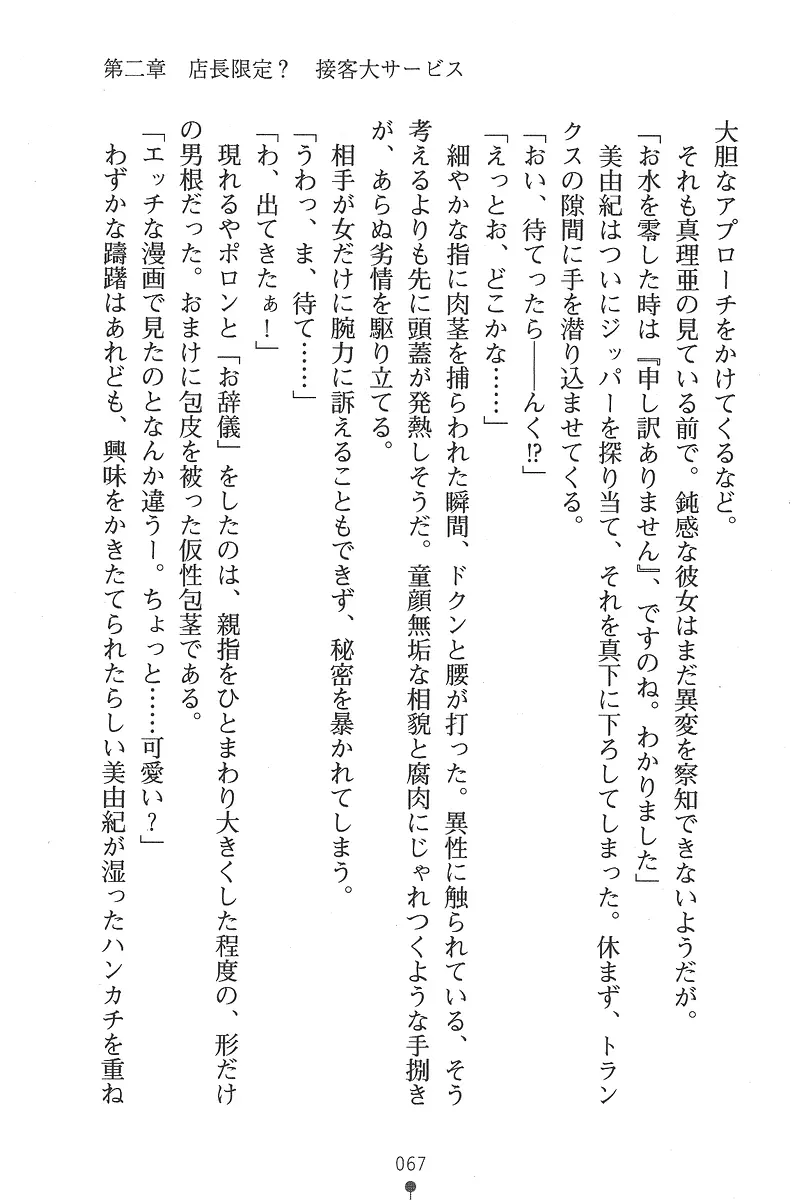 第二章　店長限定？　接客大サービス
大胆なアプローチをかけてくるなど。
それも真理亜の見ている前で。鈍感な彼女はまだ異変を察知できないようだが。
「お水を零した時は『申し訳ありません』、ですのね。わかりました」
美由紀はついにジッパーを探り当て、それを真下に下ろしてしまった。休まず、トラン
クスの隙間に手を潜り込ませてくる。
「おい、待てったら――んく!?」
「えっとお、どこかな……」
細やかな指に肉茎を捕らわれた瞬間、ドクンと腰が打った。異性に触られている、そう
考えるよりも先に頭蓋が発熱しそうだ。童顔無垢な相貌と腐肉にじゃれつくような手捌き
が、あらぬ劣情を駆り立てる。
相手が女だけに腕力に訴えることもできず、秘密を暴かれてしまう。
「うわっ、ま、待て……」
「わ、出てきたぁ！」
現れるやポロンと「お辞儀」をしたのは、親指をひとまわり大きくした程度の、形だけ
の男根だった。おまけに包皮を被った仮性包茎である。
「エッチな漫画で見たのとなんか違うー。ちょっと……可愛い？」
わずかな躊躇はあれども、興味をかきたてられたらしい美由紀が湿ったハンカチを重ね
067